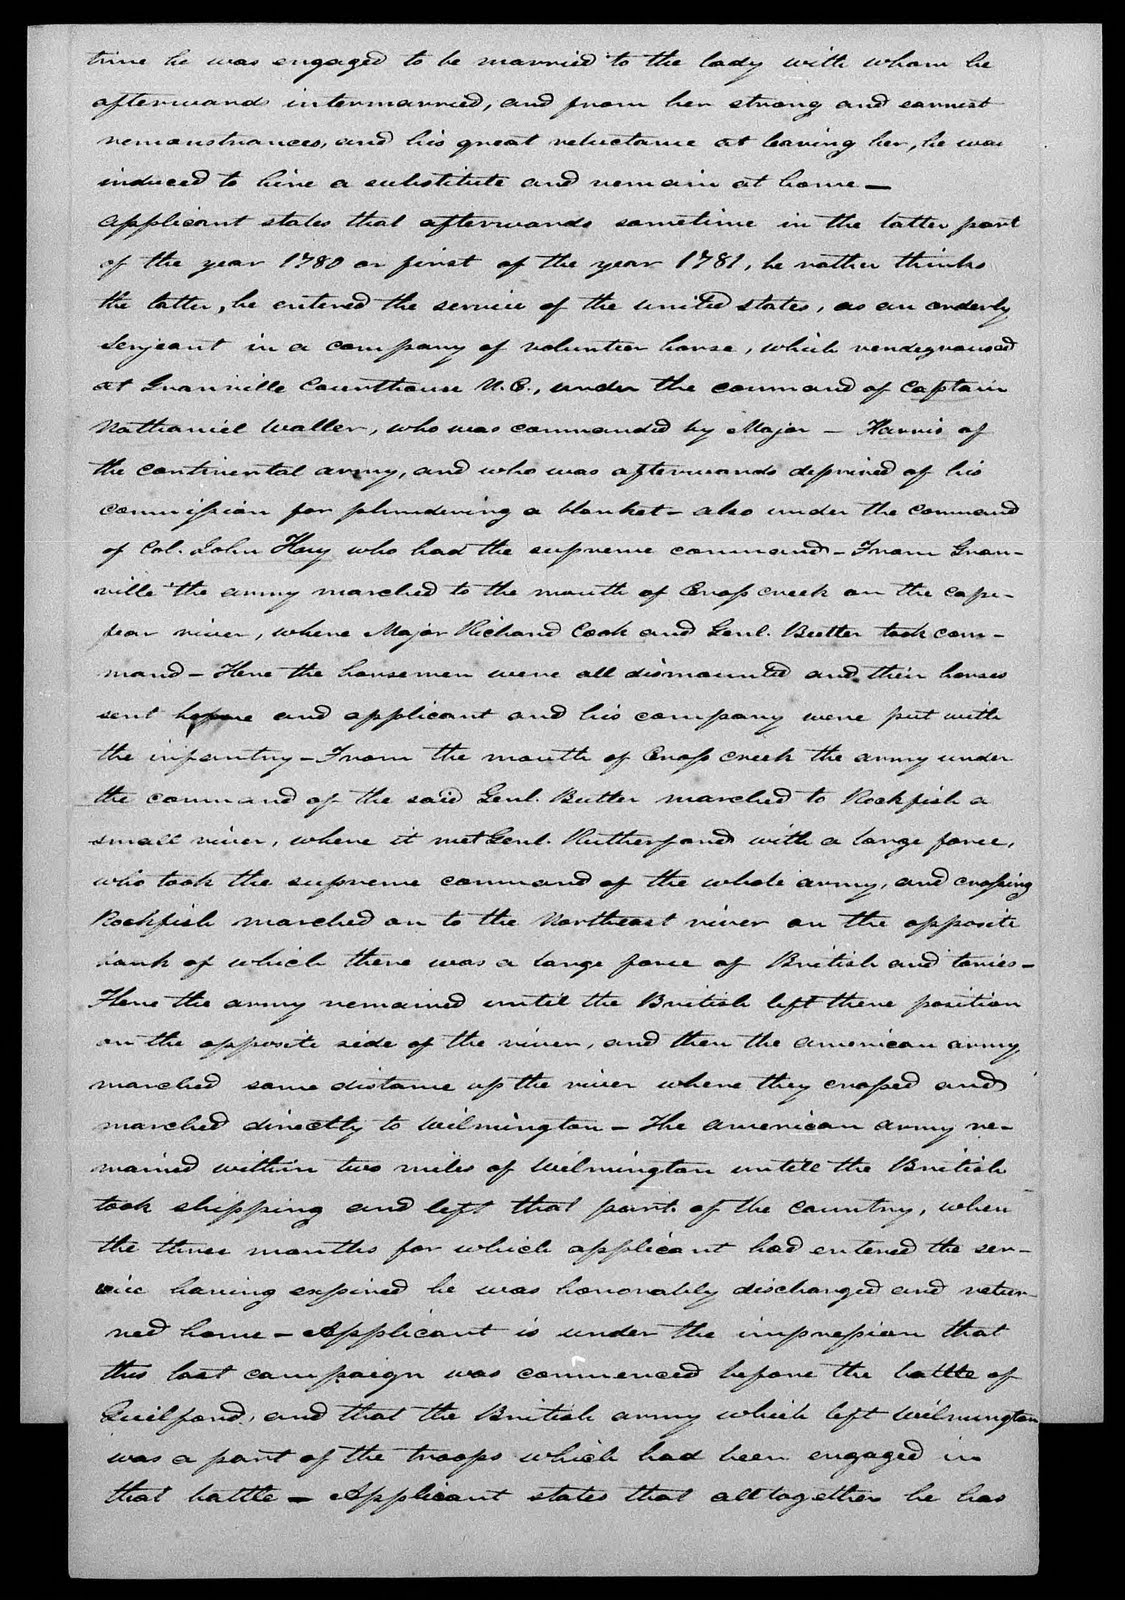 time he was engaged to be married to the lady with whom he
afterwards intermarried, and from her strong and earnest
remonstrances, and his great reluctance at leaving her, he was
induced to hire a substitute and remain at home —
Applicant states that afterwards sometime in the latter part
of the year 1780 or first of the year 1781, he rather thinks
the latter, he entered the service of the united states, as an orderly
Serjeant in a company of volunteer horse, which rendezvoused
at Granville Courthouse N.C., under the command of Captain
Nathaniel Waller, who was commanded by Major — Harris of
the continental army, and who was afterwards deprived of his
commission for plundering a blanket — also under the command
of Col. John Hay who had the supreme command — From Gran-
ville the army marched to the mouth of Cross creek on the Cape-
fear river, where Major Richard Cook and Genl. Butler took com-
mand — Here the horsemen were all dismounted and their horses
sent home and applicant and his company were put with
the infantry — From the mouth of Cross creek the army under
the command of the said Genl. Butler marched to Rockfish a
small river, where it met Genl. Rutherford with a large force,
who took the supreme command of the whole army, and crossing
Rockfish marched on to the Northeast river on the opposite
bank of which there was a large force of British and tories —
Here the army remained until the British left there position
on the opposite side of the river, and then the American army
marched some distance up the river where they crossed and
marched directly to Wilmington — The American army re-
mained within two miles of Wilmington untill the British
took shipping and left that part of the country, when
the three months for which applicant had entered the ser-
vice having expired he was honorably discharged and retur-
ned home — Applicant is under the impression that
this last campaign was commenced before the battle of
Guilford, and that the British army which left Wilmington
was a part of the troops which had been engaged in
that battle — Applicant states that alltogether he has